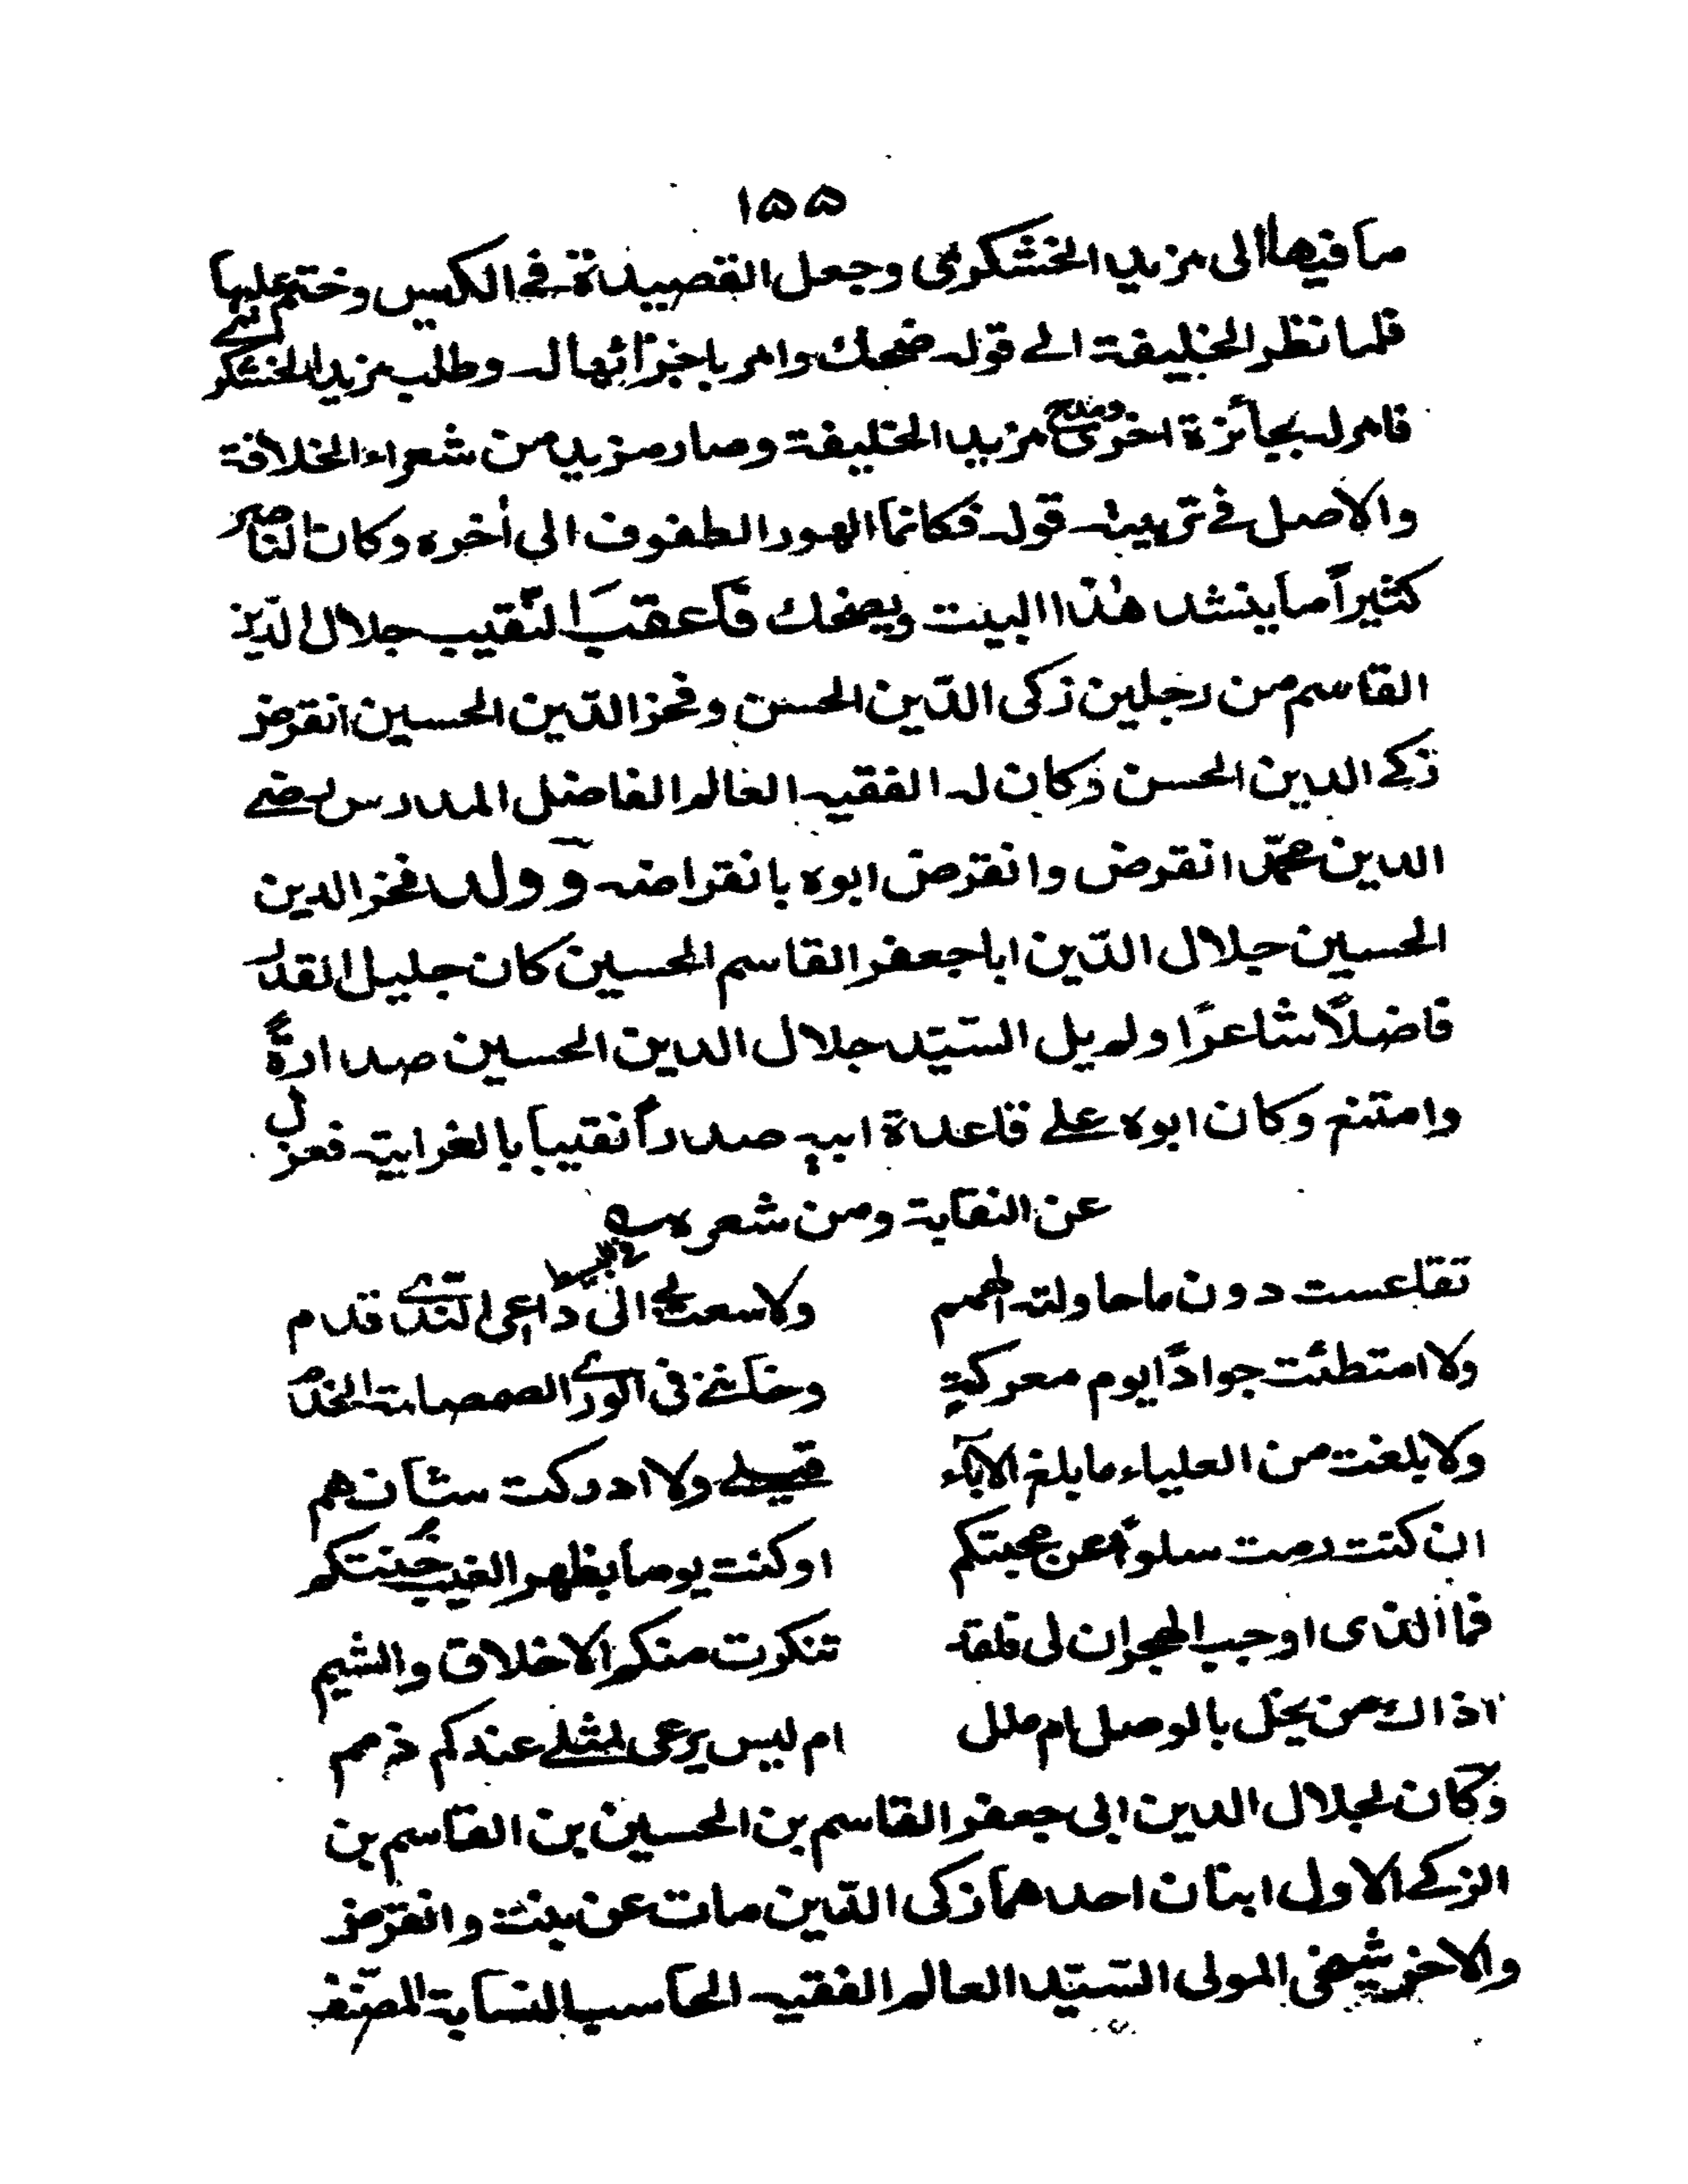 ١٥٥
ما فيها الى مزيد الخشكرى وجعل القصيدة فى الكيس وختم عليها
فلما نظر الخليفة الى قوله ضحك وامر باجزائها له وطلب مزيد الخشكرى
فامر له بجائزة اخرى ومدح مزيد الخليفة وصار مزيد من شعراء الخلافة
والاصل فى تربيته قوله فكانما الهور الطفوف الى أخره وكان الناصر
كثيراً ما ينشد هذا البيت ويضحك فأعقب النّقيب جلال الدّين
القاسم من رجلين زكى الدّين الحسن وفخر الدّين الحسين انقرض
زكى الدين الحسن وكان له الفقيه العالم الفاضل المدرس رضى
الدين محمّد انقرض وانقرض ابوه بانقراضه وولد فخر الدين
الحسين جلال الدّين ابا جعفر القاسم الحسين كان جليل القدر
فاضلاً شاعرًا ولم يل السّيّد جلال الدين الحسين صدارةً
وامتنع وكان ابوه على قاعدة ابيه صدراً نقيباً بالغرابية فعزل
عن النقابة ومن شعره
فى البسيط
تقاعست دون ما حاولته الهمم ولا سعت بى الى داعى النّدى قدم
ولا امتطئت جوادًا يوم معركةٍ وخاننى فى الورى الصمصامة الخذم
ولا بلغت من العلياء ما بلغ الآباء قبلى ولا ادركت شانهم
ان كنت رمت سلوّاً عن محبتكم او كنت يوما بظهر الغيب خُنتكم
فما الذى اوجب الهجران لى فلقد تنكرت منكم الاخلاق والشيم
اذاك من بخل بالوصل ام ملل ام ليس يرعى لمثلى عندكم ذمم
وكان لجلال الدين ابى جعفر القاسم بن الحسين بن القاسم بن
الزكى الاول ابنان احدهما زكى الدّين مات عن بنت وانقرض
والاخر شيخى المولى السّيّد العالم الفقيه الحاسب النسابة المصنّف